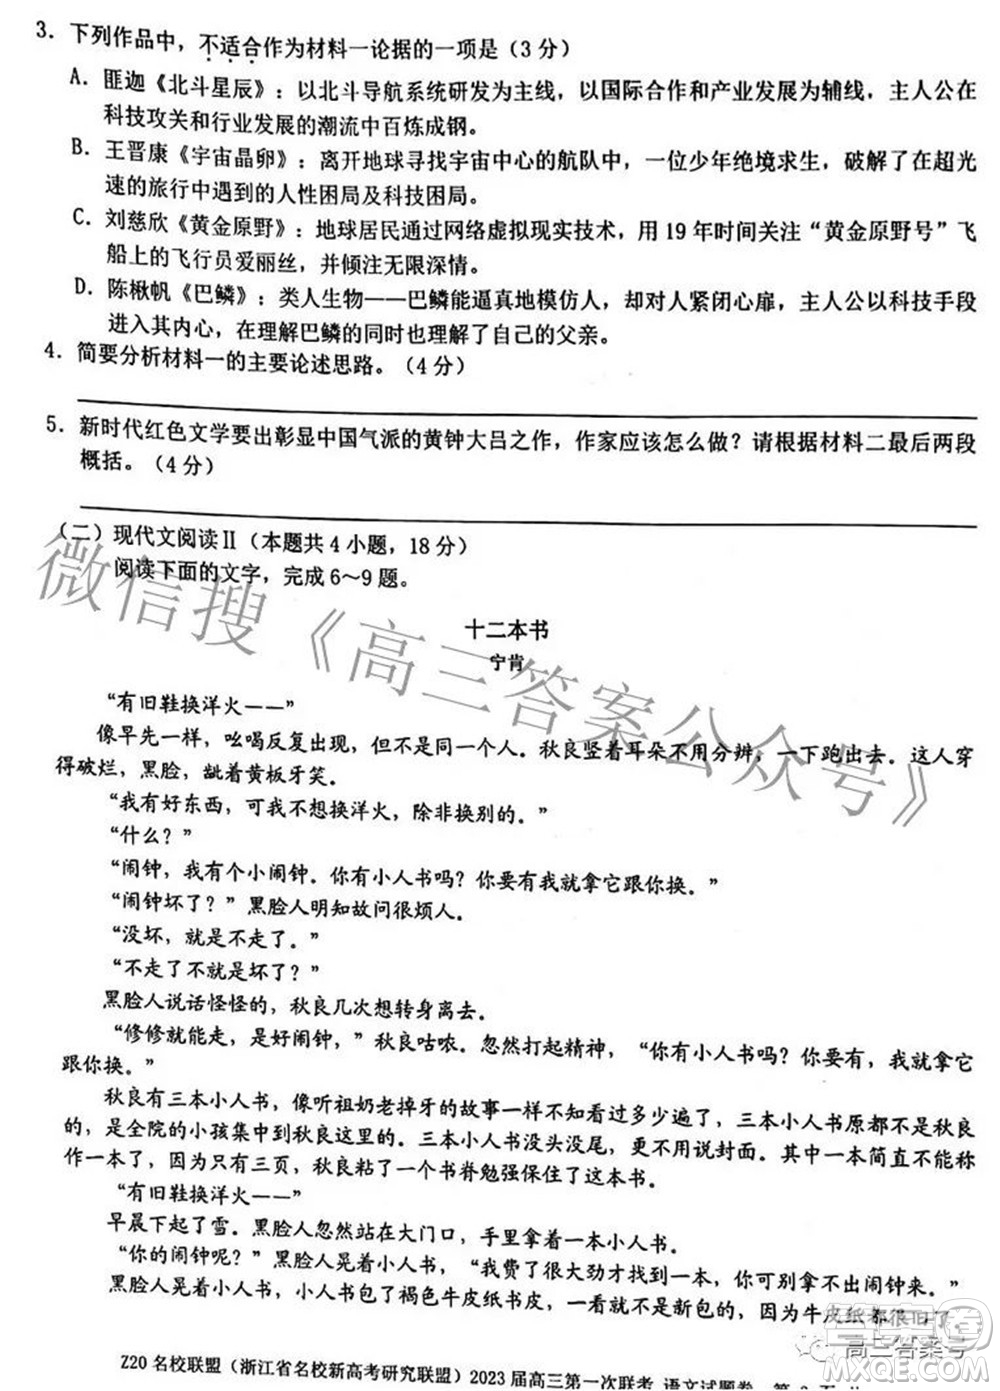 3. 下列作品中，不适合作为材料一论据的一项是（3 分）
A. 匪迦《北斗星辰》：以北斗导航系统研发为主线，以国际合作和产业发展为辅线，主人公在
科技攻关和行业发展的潮流中百炼成钢。
B. 王晋康《宇宙晶卵》：离开地球寻找宇宙中心的航队中，一位少年绝境求生，破解了在超光
速的旅行中遇到的人性困局及科技困局。
C. 刘慈欣《黄金原野》：地球居民通过网络虚拟现实技术，用 19 年时间关注“黄金原野号”飞
船上的飞行员爱丽丝，并倾注无限深情。
D. 陈楸帆《巴鳞》：类人生物——巴鳞能逼真地模仿人，却对人紧闭心扉，主人公以科技手段
进入其内心，在理解巴鳞的同时也理解了自己的父亲。
4. 简要分析材料一的主要论述思路。（4 分）
5. 新时代红色文学要出彰显中国气派的黄钟大吕之作，作家应该怎么做？请根据材料二最后两段
概括。（4 分）
（二）现代文阅读Ⅱ（本题共 4 小题，18 分）
阅读下面的文字，完成 6～9 题。
十二本书
宁肯
“有旧鞋换洋火——”
像早先一样，吆喝反复出现，但真不是同一个人。秋良竖着耳朵不用分辨，一下跑出去。这人穿
得破烂，黑脸，龇着黄板牙笑。
“我有好东西，可我不想换洋火，除非换别的。”
“什么？”
“闹钟，我有个小闹钟。你有小人书吗？你要有我就拿它跟你换。”
“闹钟坏了？”黑脸人明知故问很烦人。
“没坏，就是不走了。”
“不走了不就是坏了？”
黑脸人说话怪怪的，秋良几次想转身离去。
“修修就能走，是好闹钟，”秋良咕哝。忽然打起精神，“你有小人书吗？你要有，我就拿它
跟你换。”
秋良有三本小人书，像听祖奶老掉牙的故事一样不知看过多少遍了，三本小人书原都不是秋良
的，是全院的小孩集中到秋良这里的。三本小人书没头没尾，更不用说封面。其中一本简直不能称
作一本了，因为只有三页，秋良粘了一个书脊勉强保住了这本书。
“有旧鞋换洋火——”
早晨下起了雪。黑脸人忽然站在大门口，手里拿着一本小人书。
“你的闹钟呢？”黑脸人晃着小人书，“我费了很大劲才找到一本，别到时候你拿不出闹钟来。”
黑脸人晃着小人书，小人书包了褐色牛皮纸书皮，一看就不是新包的，因为牛皮纸都很旧了，
Z20 名校联盟（浙江省名校新高考研究联盟）2023 届高三第一次联考 语文试题卷
微信搜《高三答案公众号》
高三答案号